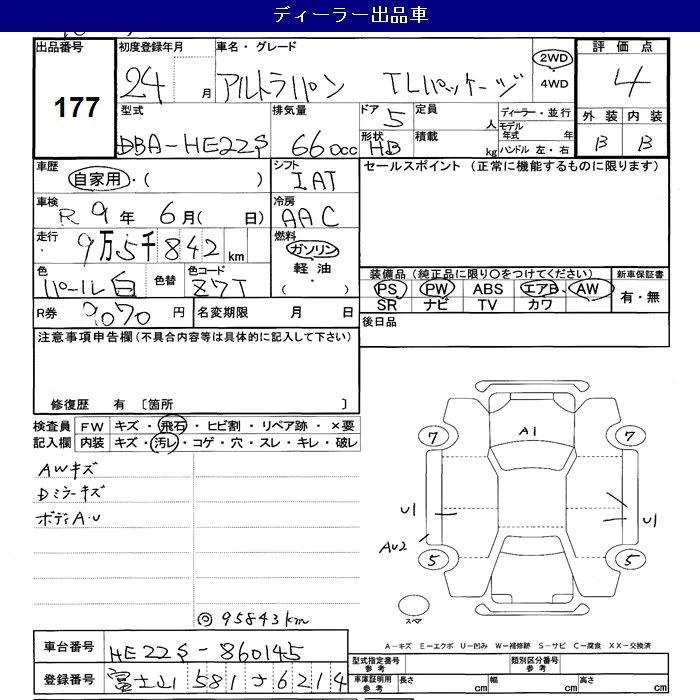 ディーラー出品車
出品番号
177
初度登録年月
24 月
車名・グレード
アルトラパン TLパッケージ
2WD
・4WD
評価点
4
外装 内装
B B
型式
DBA-HE22S
排気量
660cc
ドア 5
形状 HB
定員 人
積載 kg
ディーラー・並行
モデル年式 年
ハンドル 左・右
車歴
自家用・( )
シフト
IAT
セールスポイント (正常に機能するものに限ります)
車検
R 9年 6月( 日)
冷房
AAC
走行
9万5千842km
燃料
ガソリン
軽油
・( )
色
パール白
色替
色コード
Z7T
装備品(純正品に限り○をつけてください)
PS PW ABS エアB AW
SR ナビ TV カワ
新車保証書
有・無
R券 9,070円
名変期限 月 日
後日品
注意事項申告欄(不具合内容等は具体的に記入して下さい)
修復歴 有 〔箇所 〕
検査員記入欄
FW キズ・飛石・ヒビ割・リペア跡・×要
内装 キズ・汚レ・コゲ・穴・スレ・キレ・破レ
AWキズ
Dミラーキズ
ボディA・U
◎95843km
A1
7 7
U1 U1
AU2
5 5
スペア
A-キズ E-エクボ U-凹み W-補修跡 S-サビ C-腐食 XX-交換済
車台番号 HE22S-860145
登録番号 富士山 581 さ 6214
型式指定番号 参考
類別区分番号 参考
車庫証明用 参考
長さ cm 幅 cm 高さ cm